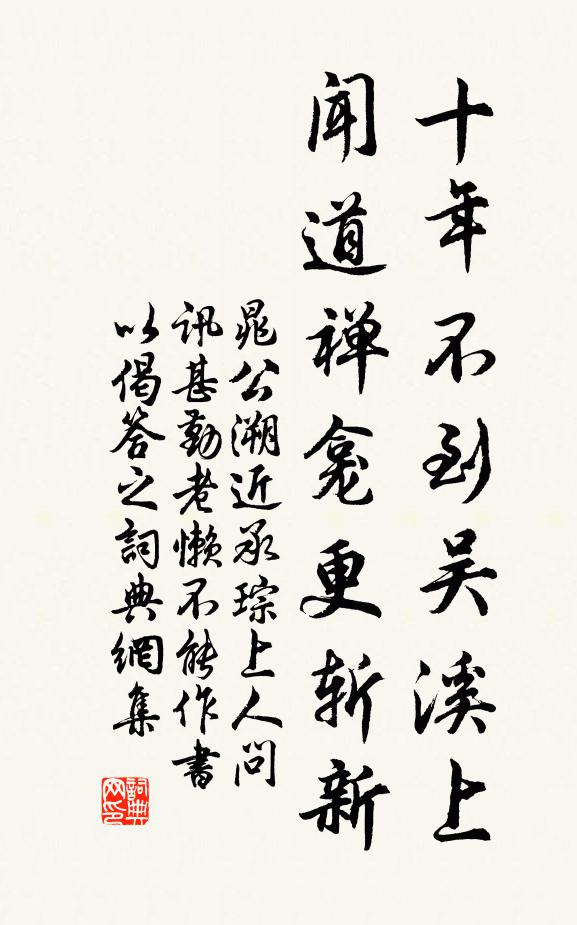 十年不到吴溪上
闻道禅龛更斩新
晁公溯近承琮上人问
讯甚勤老懒不能作书
以偈答之词典网集
词典网印